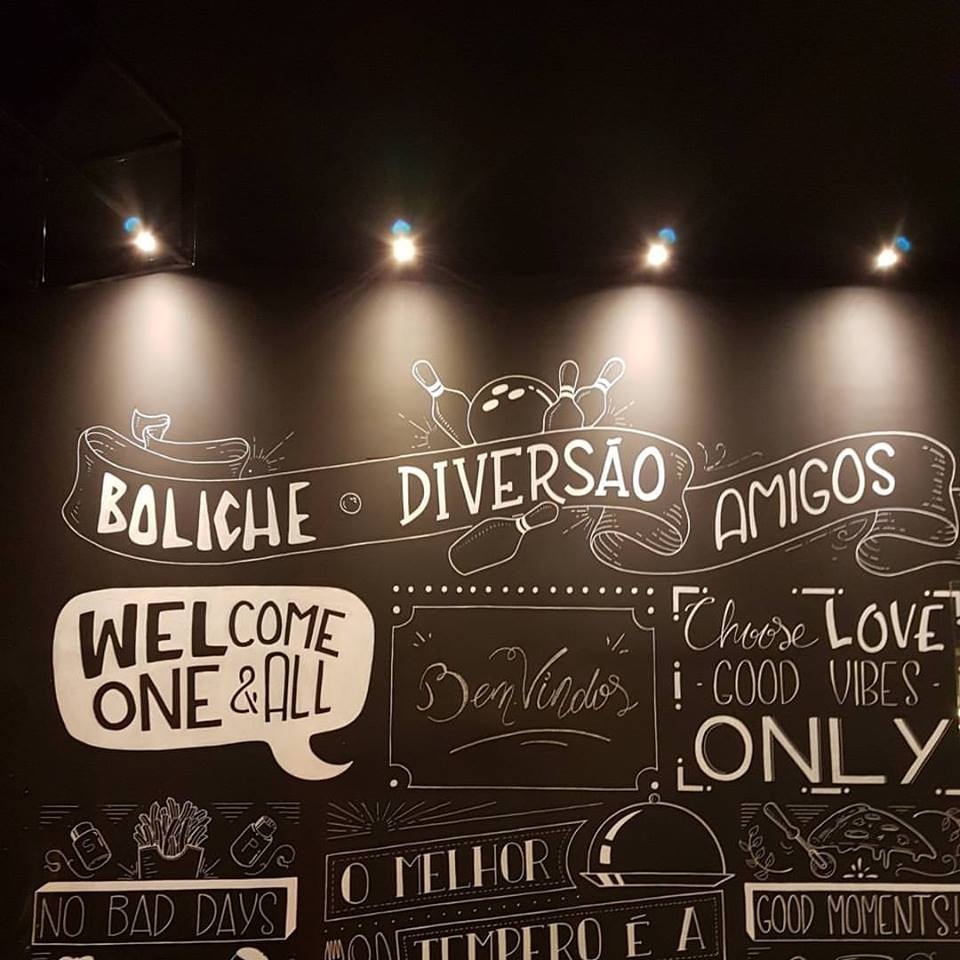 BOLICHE • DIVERSÃO AMIGOS
WELCOME
ONE & ALL
BemVindos
Choose LOVE
- GOOD VIBES -
ONLY
NO BAD DAYS
O MELHOR
TEMPERO É A
GOOD MOMENTS!
S
P